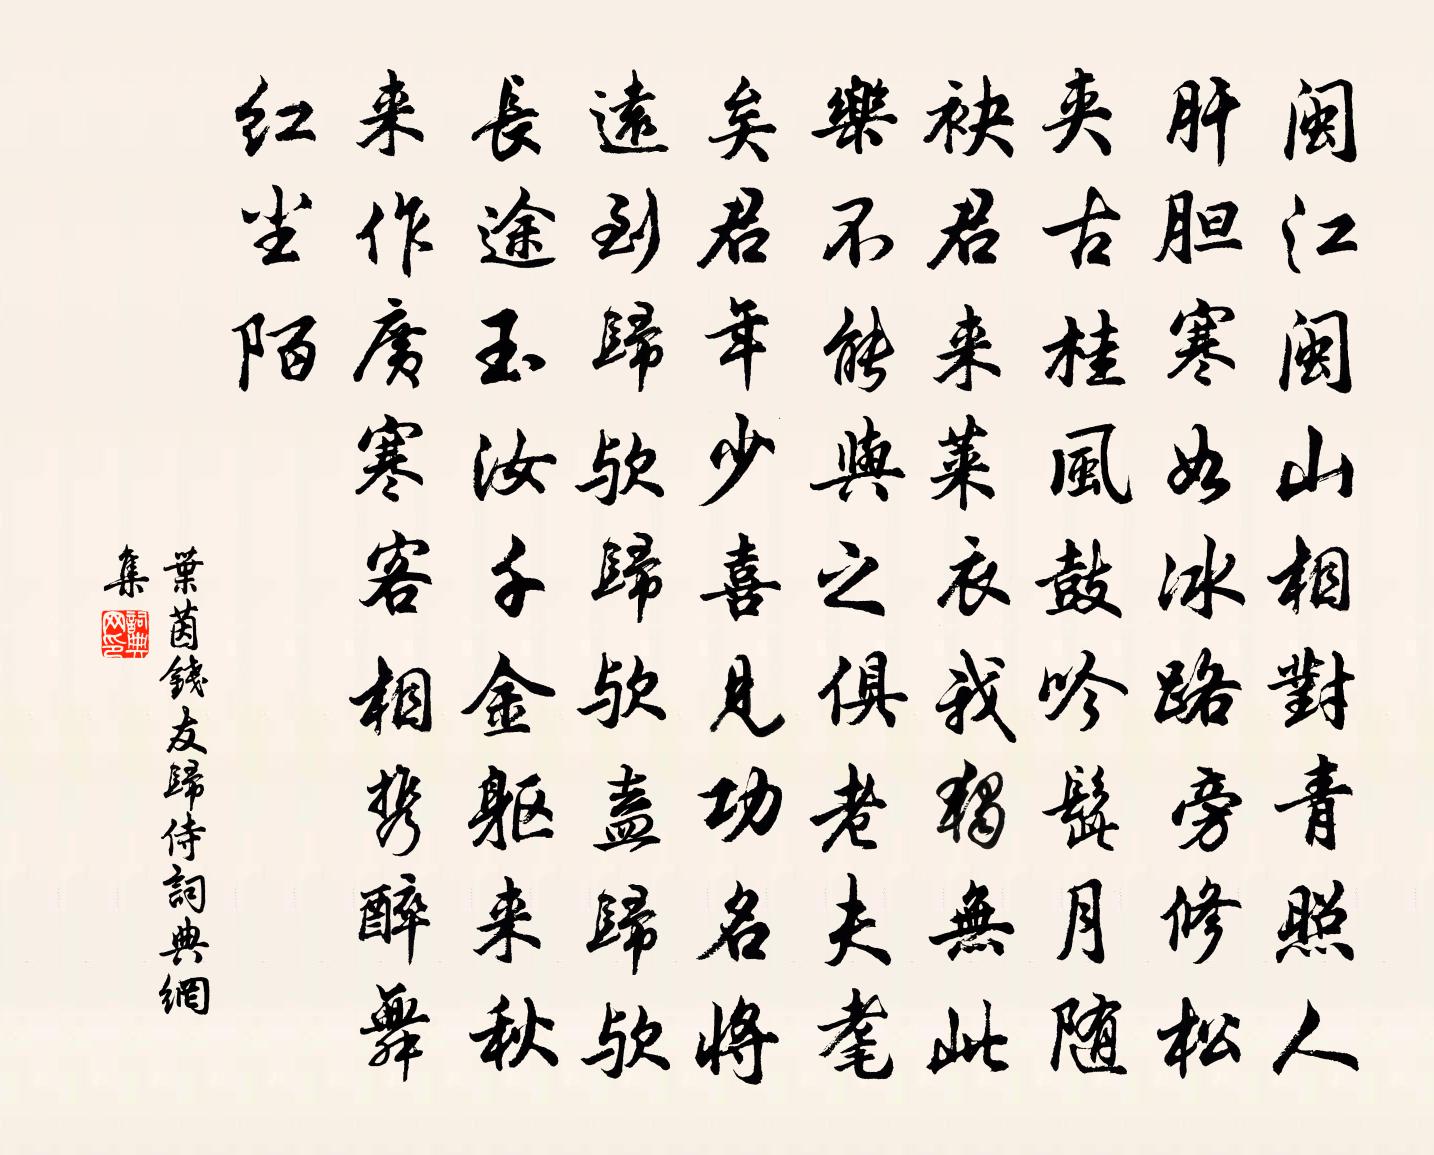 闽江闽山相對青照人
肝胆寒如冰路旁修松
夹古桂風鼓吟髭月随
袂君来莱衣我獨無此
樂不能與之俱老夫耄
矣君年少喜見功名將
遠到歸歟歸歟盍歸歟
長途玉汝千金躯来秋
来作廣寒客相携醉舞
红尘陌
葉茵錢友歸侍詞典網
集
詞典
网印